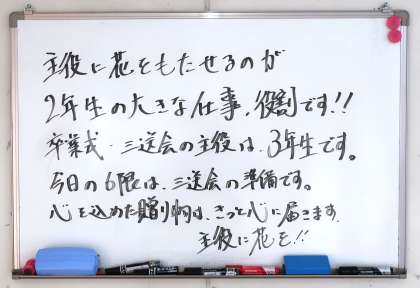 主役に花をもたせるのが
2年生の大きな仕事、役割です!!
卒業式・三送会の主役は、3年生です。
今日の6限は、三送会の準備です。
心を込めた贈り物は、きっと心に届きます。
主役に花を!!